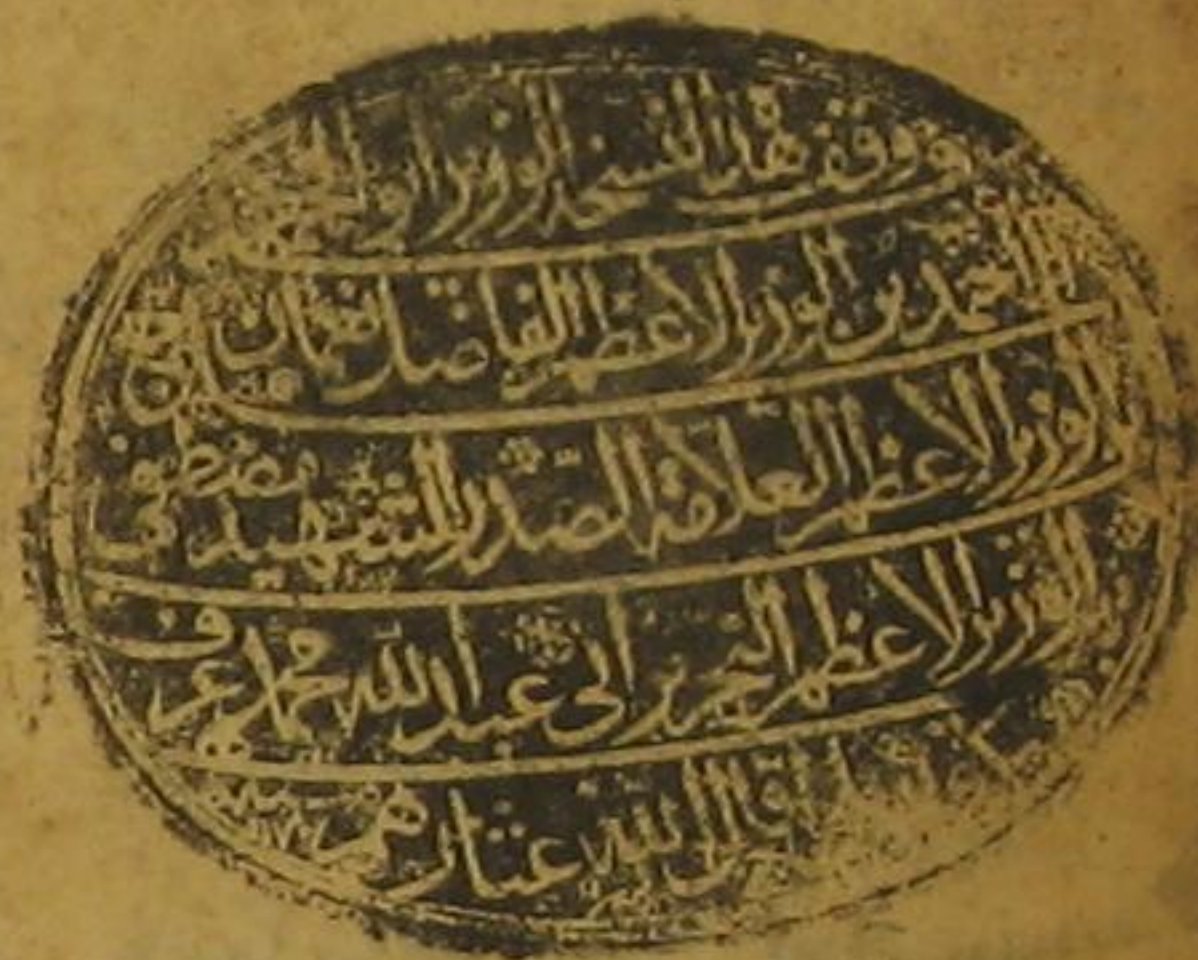 وقف هذا النسخة الوزير ابو الخير
احمد بن الوزير الاعظم الفاضل نعمان بن
الوزير الاعظم العلامة الصدر الشهيد مصطفى
بن الوزير الاعظم النحرير ابي عبد الله محمد عرف
اقال الله عثارهم